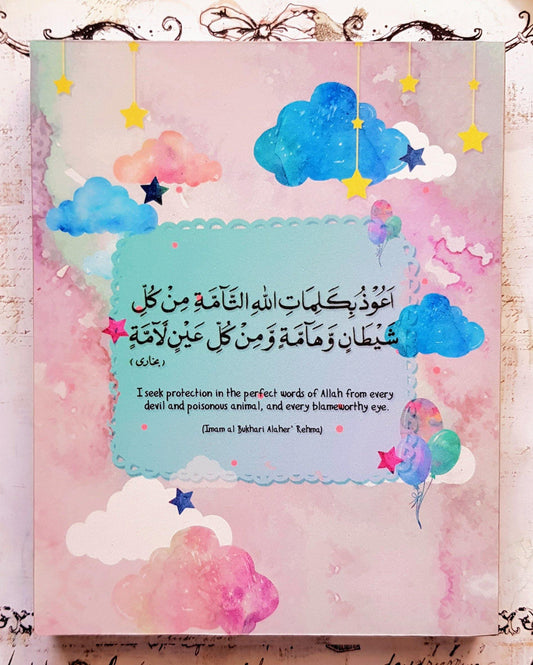 اَعُوْذُ بِكَلِمَاتِ اللهِ التَّآمَّةِ مِنْ كُلِّ
شَيْطَانٍ وَّهَآمَّةٍ وَّمِنْ كُلِّ عَيْنٍ لَّآمَّةٍ
(بخاری)
I seek protection in the perfect words of Allah from every
devil and poisonous animal, and every blameworthy eye.
(Imam al Bukhari Alaher' Rehma)